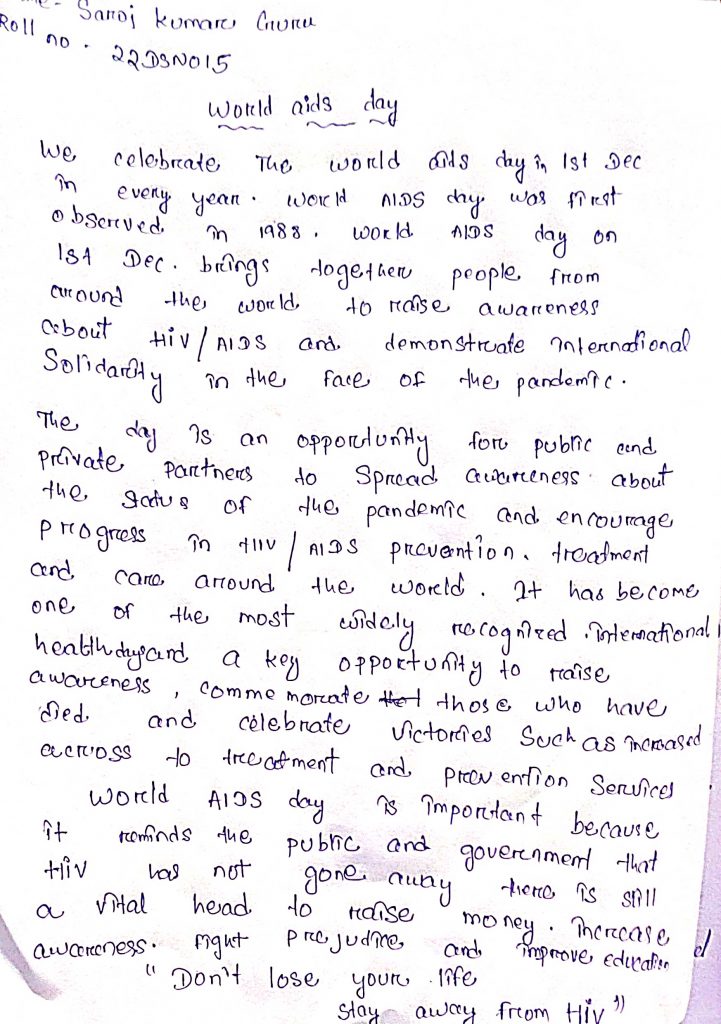 Saroj Kumar Guru
Roll no. 22DSN015
World aids day
We celebrate The world aids day in 1st Dec
in every year. World AIDS day was first
observed in 1988. World AIDS day on
1st Dec. brings together people from
around the world to raise awareness
about HIV/AIDS and demonstrate international
Solidarity in the face of the pandemic.
The day is an opportunity for public and
private partners to Spread awareness about
the status of the pandemic and encourage
progress in HIV/AIDS prevention. treatment
and care around the world. It has become
one of the most widely recognized. International
health days and a key opportunity to raise
awareness, commemorate those who have
died and celebrate victories Such as increased
accross to treatment and prevention Services.
World AIDS day is important because
it reminds the public and government that
HIV has not gone away there is still
a vital head to raise money. Increase
awareness. fight prejudice and improve education
"Don't lose your life
stay away from HIV"